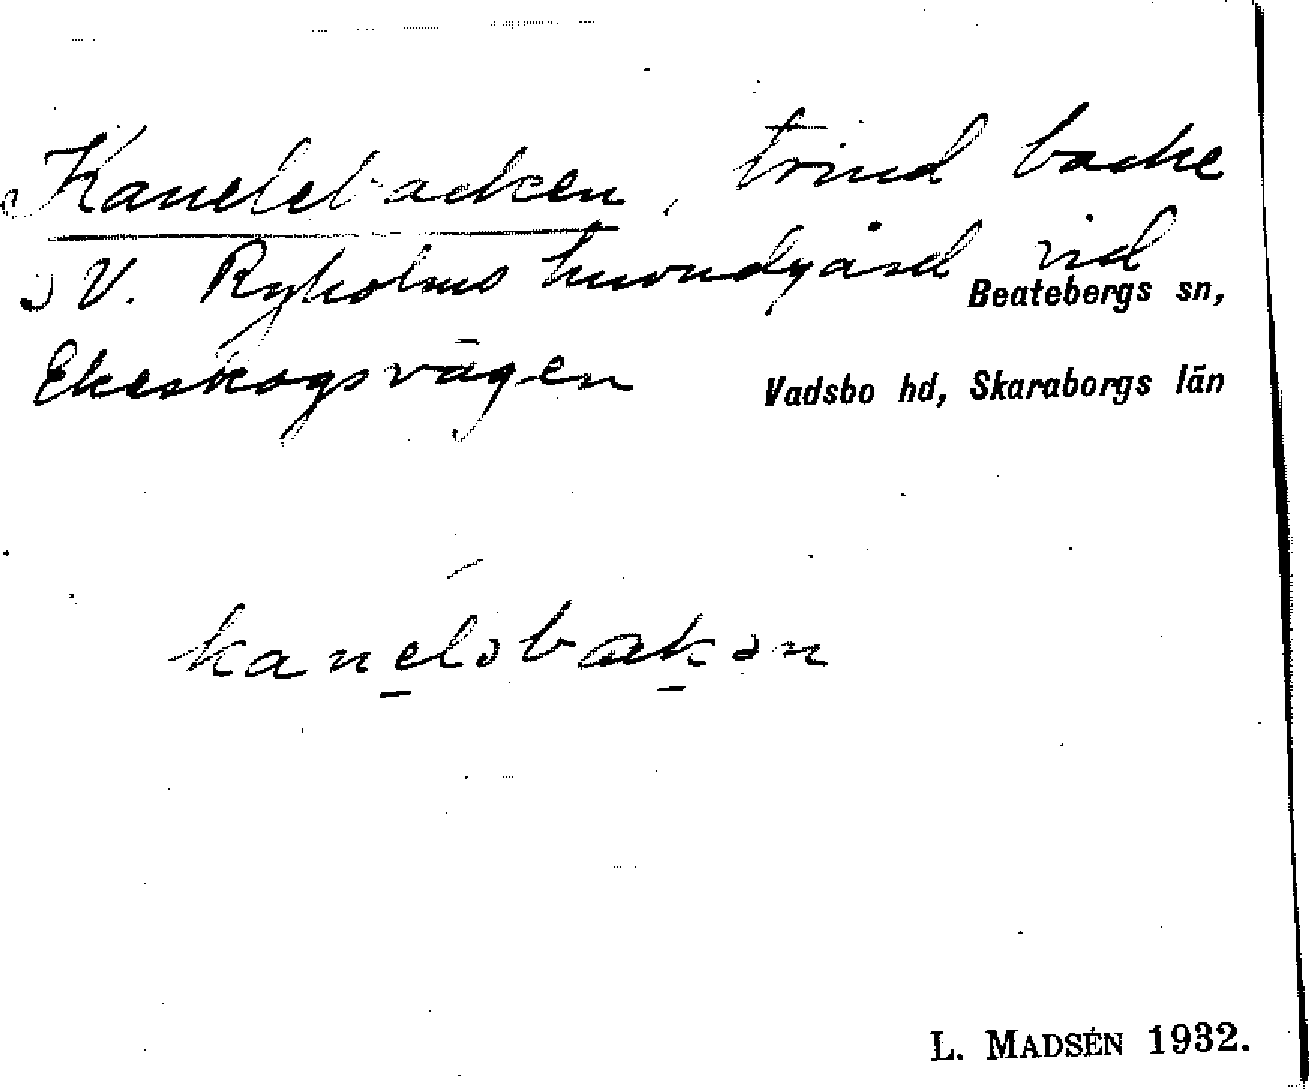 Kanelebacken, trind backe
i V. Ryholms huvudgård vid
Beatebergs sn,
Ekeskogsvägen
Vadsbo hd, Skaraborgs län
kaneləbakən
L. MADSÉN 1932.